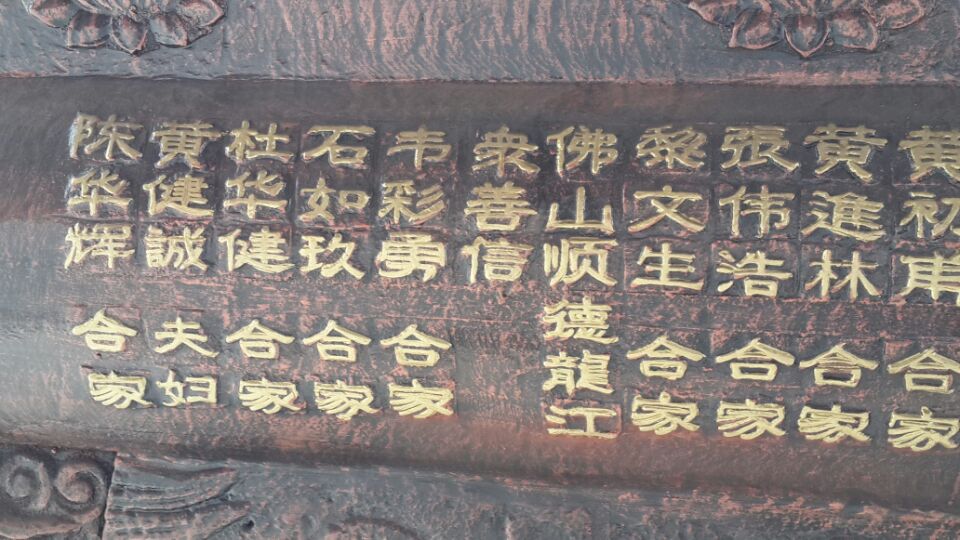 黄初甫合家
黄進林合家
張伟浩合家
黎文生合家
佛山顺德龍江
衆善信
韦彩勇合家
石如玖合家
杜华健合家
黄健誠夫妇
陈华辉合家